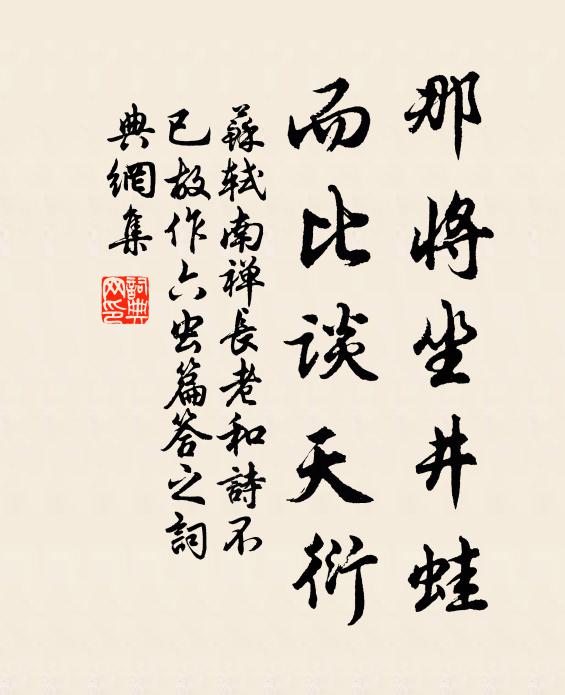 那將坐井蛙
而比談天衍
蘇軾南禅長老和詩不
已故作六虫篇答之詞
典網集
詞典网印